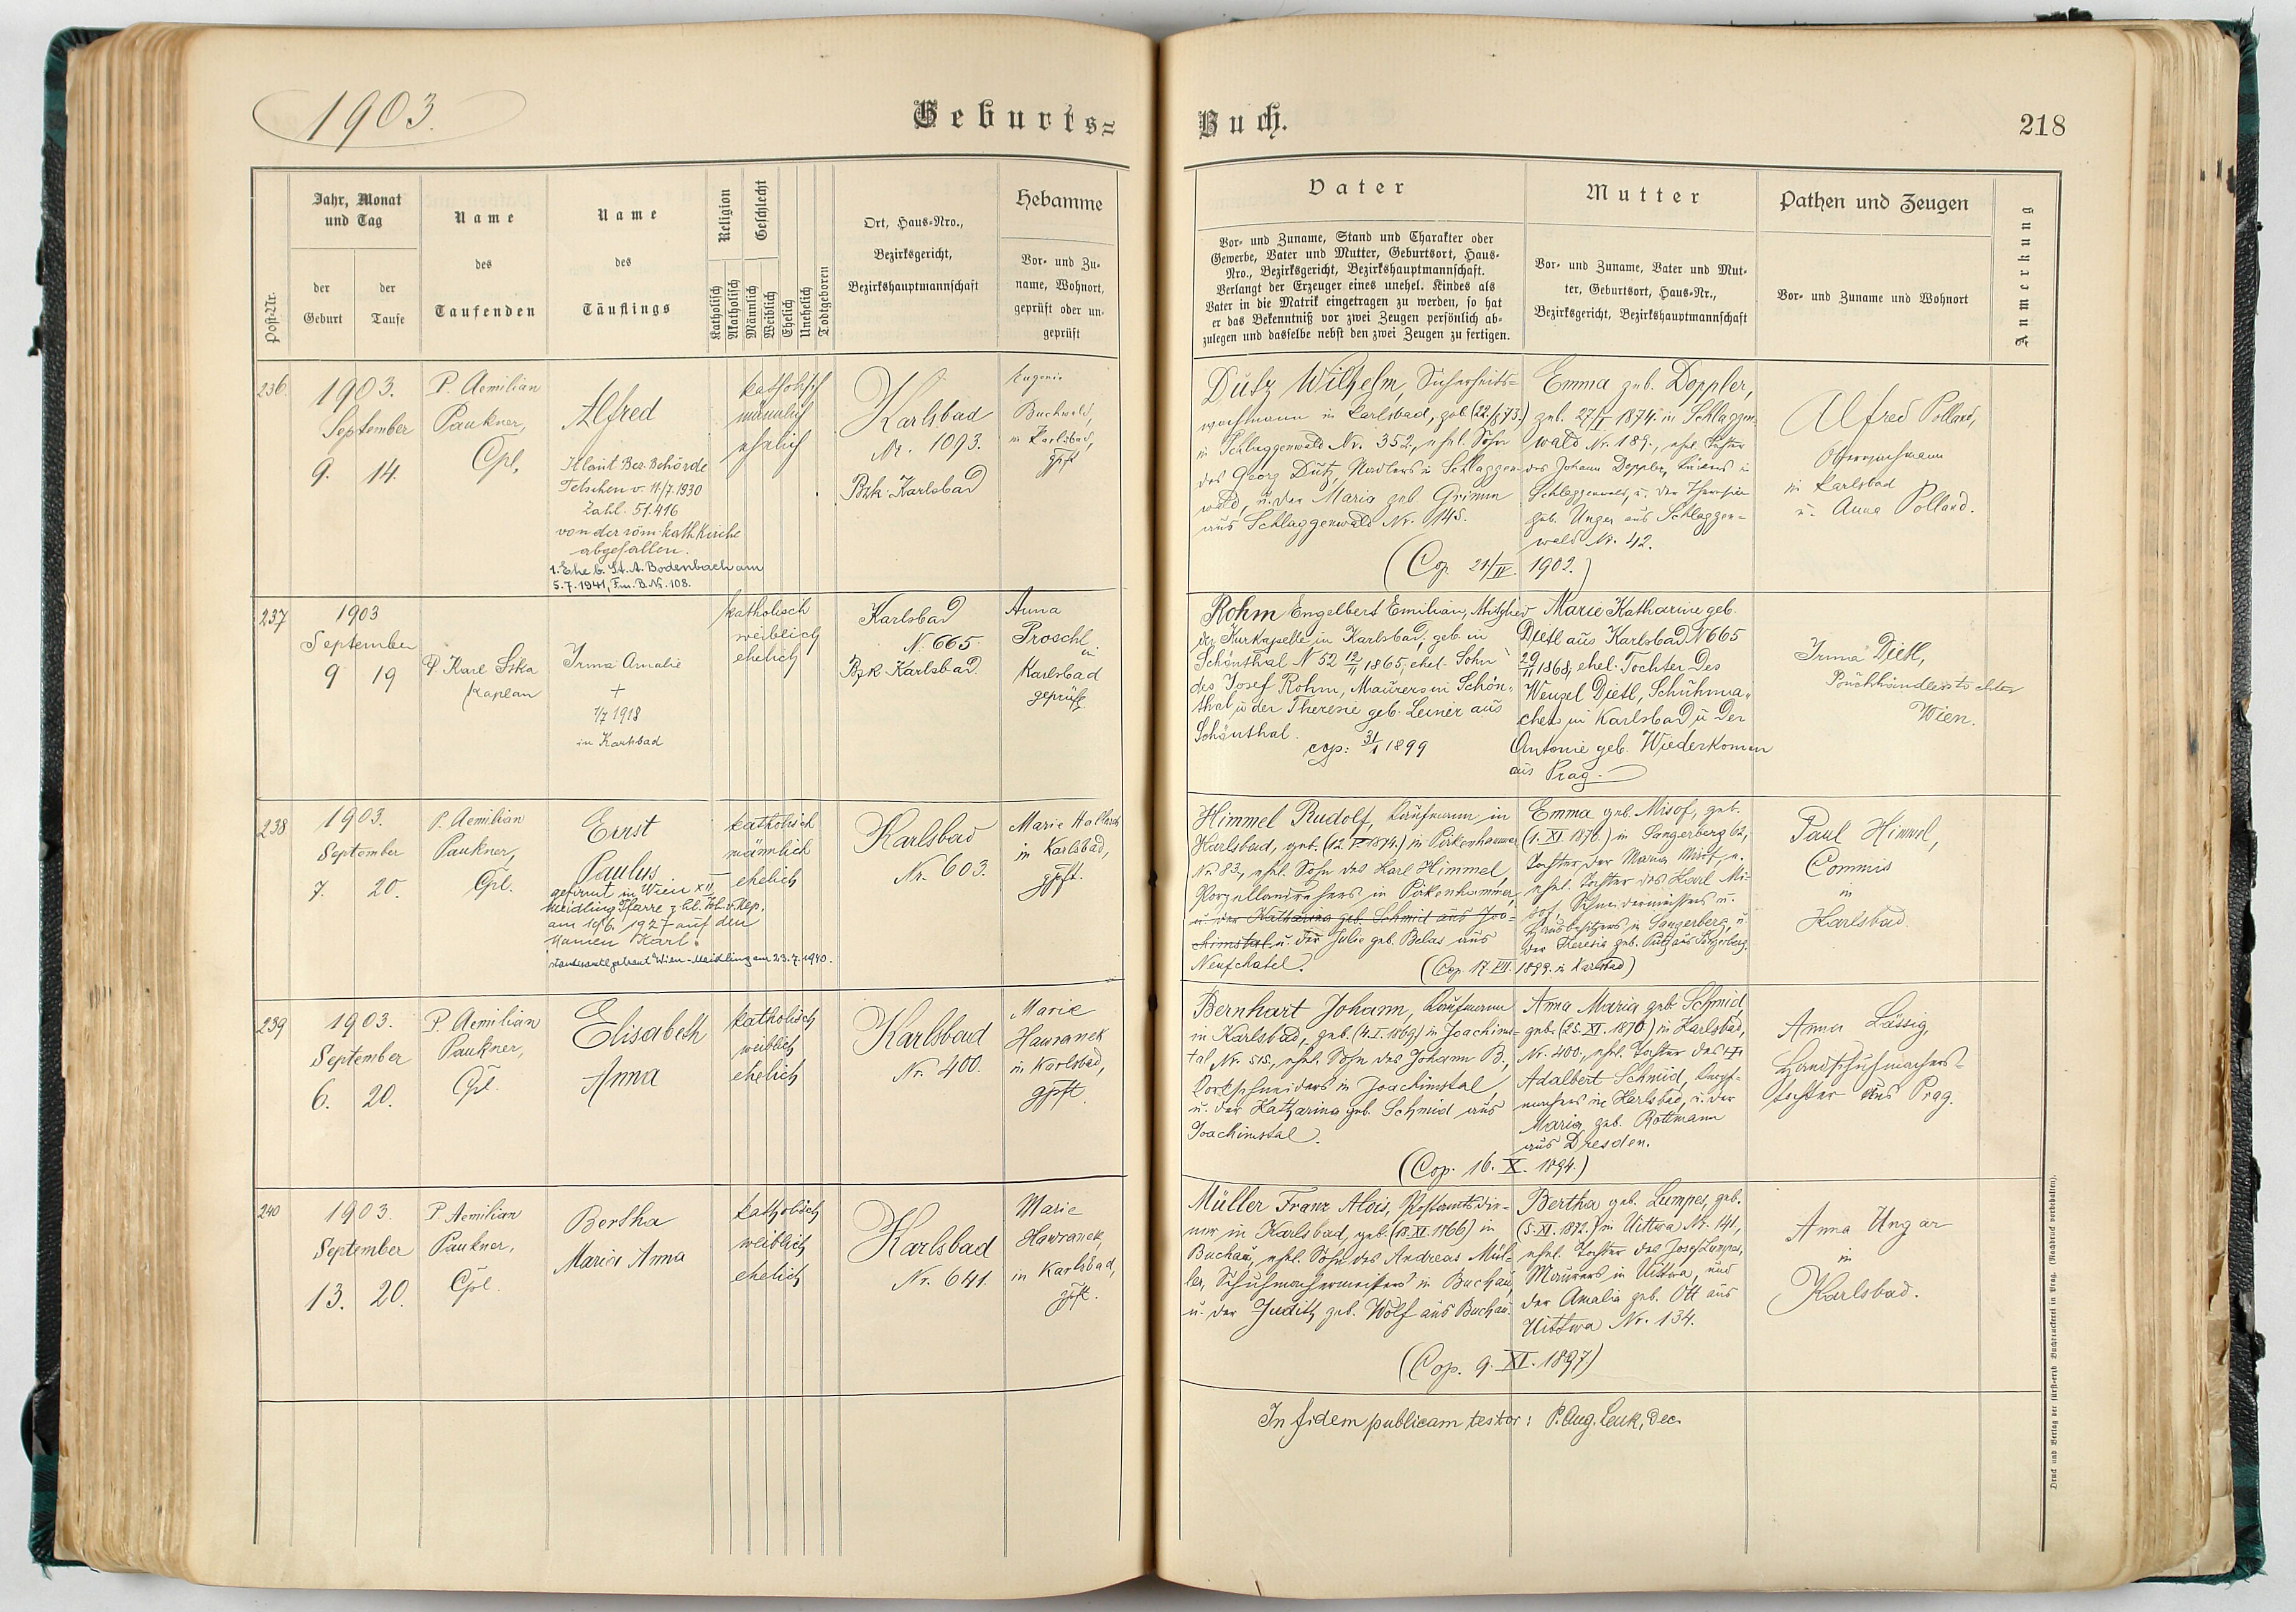 1903.
Geburts=
Buch.
218
Post-Nr.
Jahr, Monat
und Tag
der
Geburt
der
Taufe
Name
des
Taufenden
Name
des
Täuflings
Religion
Geschlecht
Katholisch
Akatholisch
Männlich
Weiblich
Ehelich
Unehelich
Todtgeboren
Ort, Haus-Nro.,
Bezirksgericht,
Bezirkshauptmannschaft
Hebamme
Vor- und Zu-
name, Wohnort,
geprüft oder un-
geprüft
Vater
Vor- und Zuname, Stand und Charakter oder
Gewerbe, Vater und Mutter, Geburtsort, Haus-
Nro., Bezirksgericht, Bezirkshauptmannschaft.
Verlangt der Erzeuger eines unehel. Kindes als
Vater in die Matrik eingetragen zu werden, so hat
er das Bekenntniß vor zwei Zeugen persönlich ab-
zulegen und dasselbe nebst den zwei Zeugen zu fertigen.
Mutter
Vor- und Zuname, Vater und Mut-
ter, Geburtsort, Haus-Nr.,
Bezirksgericht, Bezirkshauptmannschaft
Pathen und Zeugen
Vor- und Zuname und Wohnort
Anmerkung
236.
1903.
September
9. 14.
P. Aemilian
Paukner,
Cpl.
Alfred
Laut Bez. Behörde
Tetschen v. 11/7.1930
Zahl. 51.416
von der röm. kath Kirche
abgefallen.
1. Ehe b. St. A. Bodenbach am
5.7.1941, Fm. B. Nr. 108.
katholisch
männlich
ehelich
Karlsbad
Nr. 1093.
Bzk. Karlsbad
Eugenie
Buchwald,
in Karlsbad,
gpft
Dutz Wilhelm, Sicherheits-
wachmann in Karlsbad, geb. (22./8 73.)
in Schlaggenwald Nr. 352, ehel. Sohn
des Georg Dutz, Nadlers in Schlaggen-
wald, u. der Maria geb. Grimm
aus Schlaggenwald Nr. 145.
Emma geb. Doppler,
geb. 27/I 1874. in Schlaggen-
wald Nr. 189., ehel. Tochter
des Johann Doppler, in
Schlaggenwald, u. der Theresia
geb. Unger aus Schlaggen-
wald Nr. 42.
(Cop. 21/IV. 1902.)
Alfred Polland,
Oberwachmann
in Karlsbad
u. Anna Polland.
237
1903
September
9 19
P. Karl Siska
Kaplan
Irma Amalie
+
1/7 1918
in Karlsbad
katholisch
weiblich
ehelich
Karlsbad
N. 665
Bzk Karlsbad.
Anna
Proschl
in
Karlsbad
geprüft
Rohm Engelbert Emilian, Mitglied
der Kurkapelle in Karlsbad; geb. in
Schönthal N 52 12/11 1865, ehel. Sohn
des Josef Rohm, Maurers in Schön-
thal u der Theresie geb. Leiner aus
Schönthal.
cop: 31/1 1899
Marie Katharine geb.
Dietl aus Karlsbad N 665
29/11 1868, ehel. Tochter des
Wenzel Dietl, Schuhma-
chers in Karlsbad u der
Antonie geb. Wiederkomm
aus Prag.
Irma Dietl,
Buchhändlerstochter
Wien.
238
1903.
September
7. 20.
P. Aemilian
Paukner,
Cpl.
Ernst
Paulus
gefirmt in Wien XII
Meidling Pfarre z. hl. Joh. v. Nep.
am 19/6. 1927 auf den
Namen Karl.
standesamtl. getraut Wien-Meidling am 23.7.1940.
katholisch
männlich
ehelich
Karlsbad
Nr. 603.
Marie
in Karlsbad,
gpft.
Himmel Rudolf, Kaufmann in
Karlsbad, geb. in Pirkenhammer
Nr. 83, ehel. Sohn des Karl Himmel,
Porzellandrehers in Pirkenhammer,
u. der Katharina geb. Schmid aus Joa-
chimstal u. der Julie geb. Belas aus
Neufchatel.
(Cop. 17. VII. 1899. in Karlsbad)
Emma geb. Misof, geb.
(1. XI. 1876.) in Sangerberg 62,
Tochter der Maria Misof, u.
ehel. Tochter des Karl Mi-
sof, Schneidermeisters u.
Hausbesitzers in Sangerberg, u.
der Theresia geb. aus Sangerberg.
Paul Himmel,
Commis
in
Karlsbad.
239
1903.
September
6. 20.
P. Aemilian
Paukner,
Cpl.
Elisabeth
Anna
katholisch
weiblich
ehelich
Karlsbad
Nr. 400.
Marie
Hawranek
in Karlsbad,
gpft.
Bernhart Johann, Kaufmann
in Karlsbad, geb. (4. I. 1869) in Joachims-
tal, Nr. 515, ehel. Sohn des Johann B.,
Korkschneiders in Joachimstal,
u. der Katharina geb. Schmid aus
Joachimstal.
Anna Maria geb. Schmid,
geb. (25. XI. 1870.) in Karlsbad,
Nr. 400, ehel. Tochter des
Adalbert Schmid,
in Karlsbad, u. der
Maria geb. Rottmann
aus Dresden.
(Cop. 16. X. 1894.)
Anna Lässig,
Handschuhmachers-
tochter aus Prag.
240
1903.
September
13. 20.
P. Aemilian
Paukner,
Cpl.
Bertha
Maria Anna
katholisch
weiblich
ehelich
Karlsbad
Nr. 641.
Marie
Hawranek,
in Karlsbad,
gpft.
Müller Franz Alois, Postamtsdie-
ner in Karlsbad, geb. (18. XI. 1866) in
Buchau, ehel. Sohn des Andreas Mül-
ler, Schuhmachermeisters in Buchau,
u. der Judith geb. Wolf aus Buchau.
Bertha geb. Lumpes, geb.
(5. XI. 1872.) in Uittwa Nr. 141,
ehel. Tochter des Josef Lumpes,
Maurers in Uittwa, und
der Amalia geb. Ott aus
Uittwa Nr. 134.
(Cop. 9. XI. 1897)
Anna Ungar
in
Karlsbad.
In fidem publicam testor: P. Aug. Leuk, Dec.
Druck und Verlag der fürst-erzb Buchdruckerei in Prag. (Nachdruck vorbehalten).